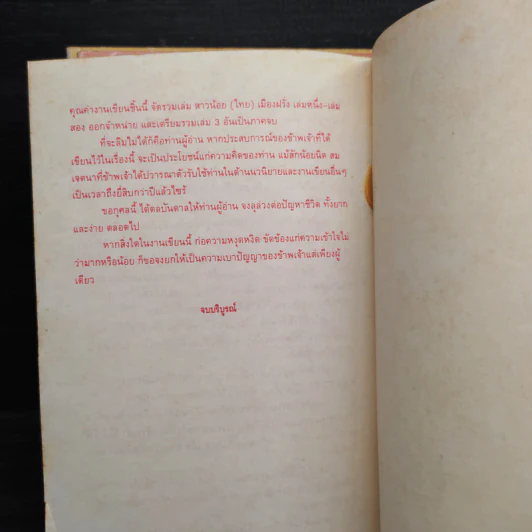 คุณค่างานเขียนชิ้นนี้ จัดรวมเล่ม สาวน้อย (ไทย) เมืองฝรั่ง เล่มหนึ่ง-เล่ม
สอง ออกจำหน่าย และเตรียมรวมเล่ม 3 อันเป็นภาคจบ
ที่จะลืมไม่ได้ก็คือท่านผู้อ่าน หากประสบการณ์ของข้าพเจ้าที่ได้
เขียนไว้ในเรื่องนี้ จะเป็นประโยชน์แก่ความคิดของท่าน แม้สักน้อยนิด สม
เจตนาที่ข้าพเจ้าได้ปวารณาตัวรับใช้ท่านในด้านนวนิยายและงานเขียนอื่นๆ
เป็นเวลาถึงยี่สิบกว่าปีแล้วไซร้
ขอกุศลนี้ ได้ดลบันดาลให้ท่านผู้อ่าน จงลุล่วงต่อปัญหาชีวิต ทั้งยาก
และง่าย ตลอดไป
หากสิ่งใดในงานเขียนนี้ ก่อความหงุดหงิด ขัดข้องแก่ความเข้าใจไม่
ว่ามากหรือน้อย ก็ขอจงยกให้เป็นความเบาปัญญาของข้าพเจ้าแต่เพียงผู้
เดียว
จบบริบูรณ์